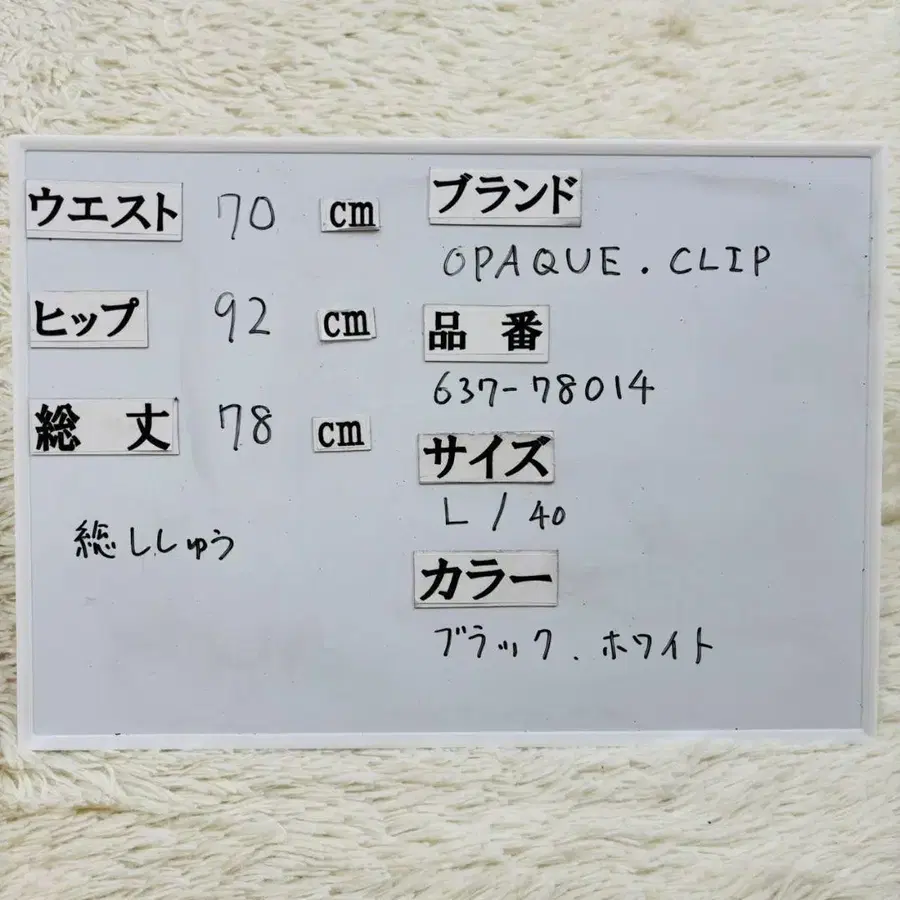 ウエスト 70 cm
ヒップ 92 cm
総丈 78 cm
総ししゅう
ブランド
OPAQUE.CLIP
品番
637-78014
サイズ
L/40
カラー
ブラック.ホワイト